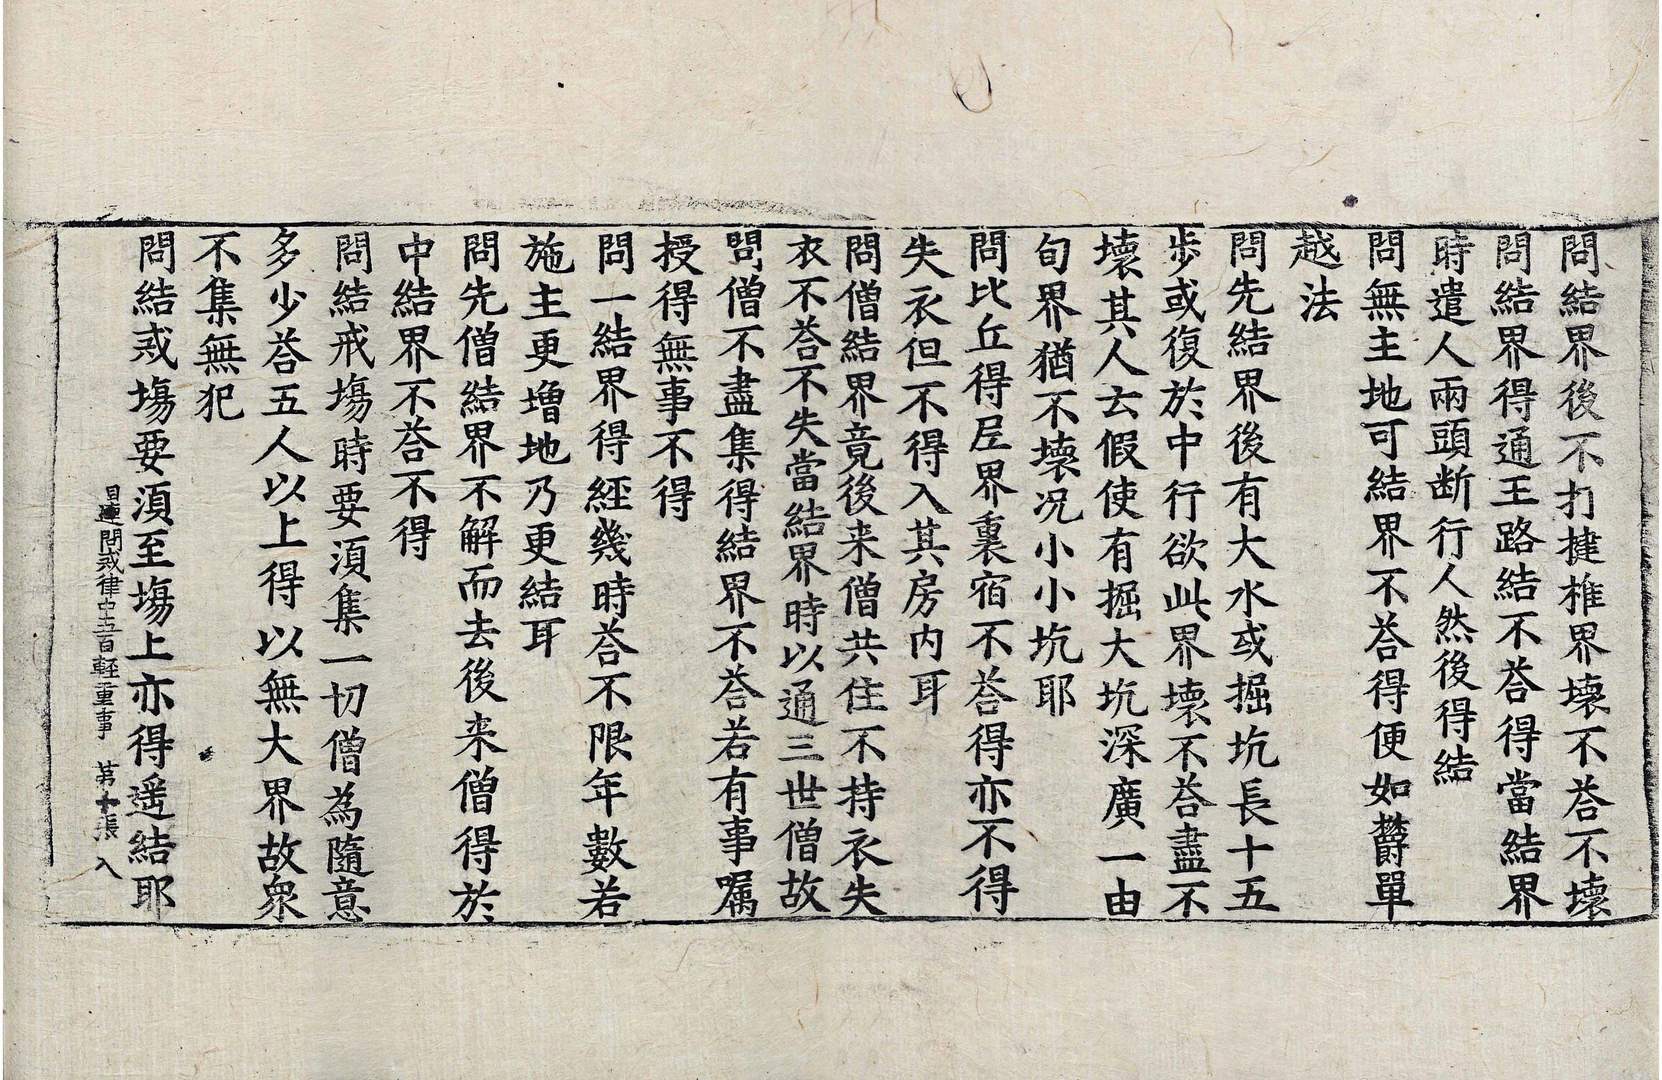 問結界後不打揵椎界壞不荅不壞
問結界得通王路結不荅得當結界
時遣人兩頭断行人然後得結
問無主地可結界不荅得便如欝單
越法
問先結界後有大水或掘坑長十五
步或復於中行欲此界壞不荅盡不
壞其人去假使有掘大坑深廣一由
旬界猶不壞况小小坑耶
問比丘得𡱝界裏宿不荅得亦不得
失衣但不得入其房内耳
問僧結界竟後来僧共住不持衣失
衣不荅不失當結界時以通三世僧故
問僧不盡集得結界不荅若有事嘱
授得無事不得
問一結界得經幾時荅不限年數若
施主更增地乃更結耳
問先僧結界不解而去後来僧得於
中結界不荅不得
問結戒塲時要湏集一切僧為隨意
多少荅五人以上得以無大界故衆
不集無犯
問結戒塲要湏至塲上亦得遥結耶
目連問戒律中五百輕重事 第十張 入